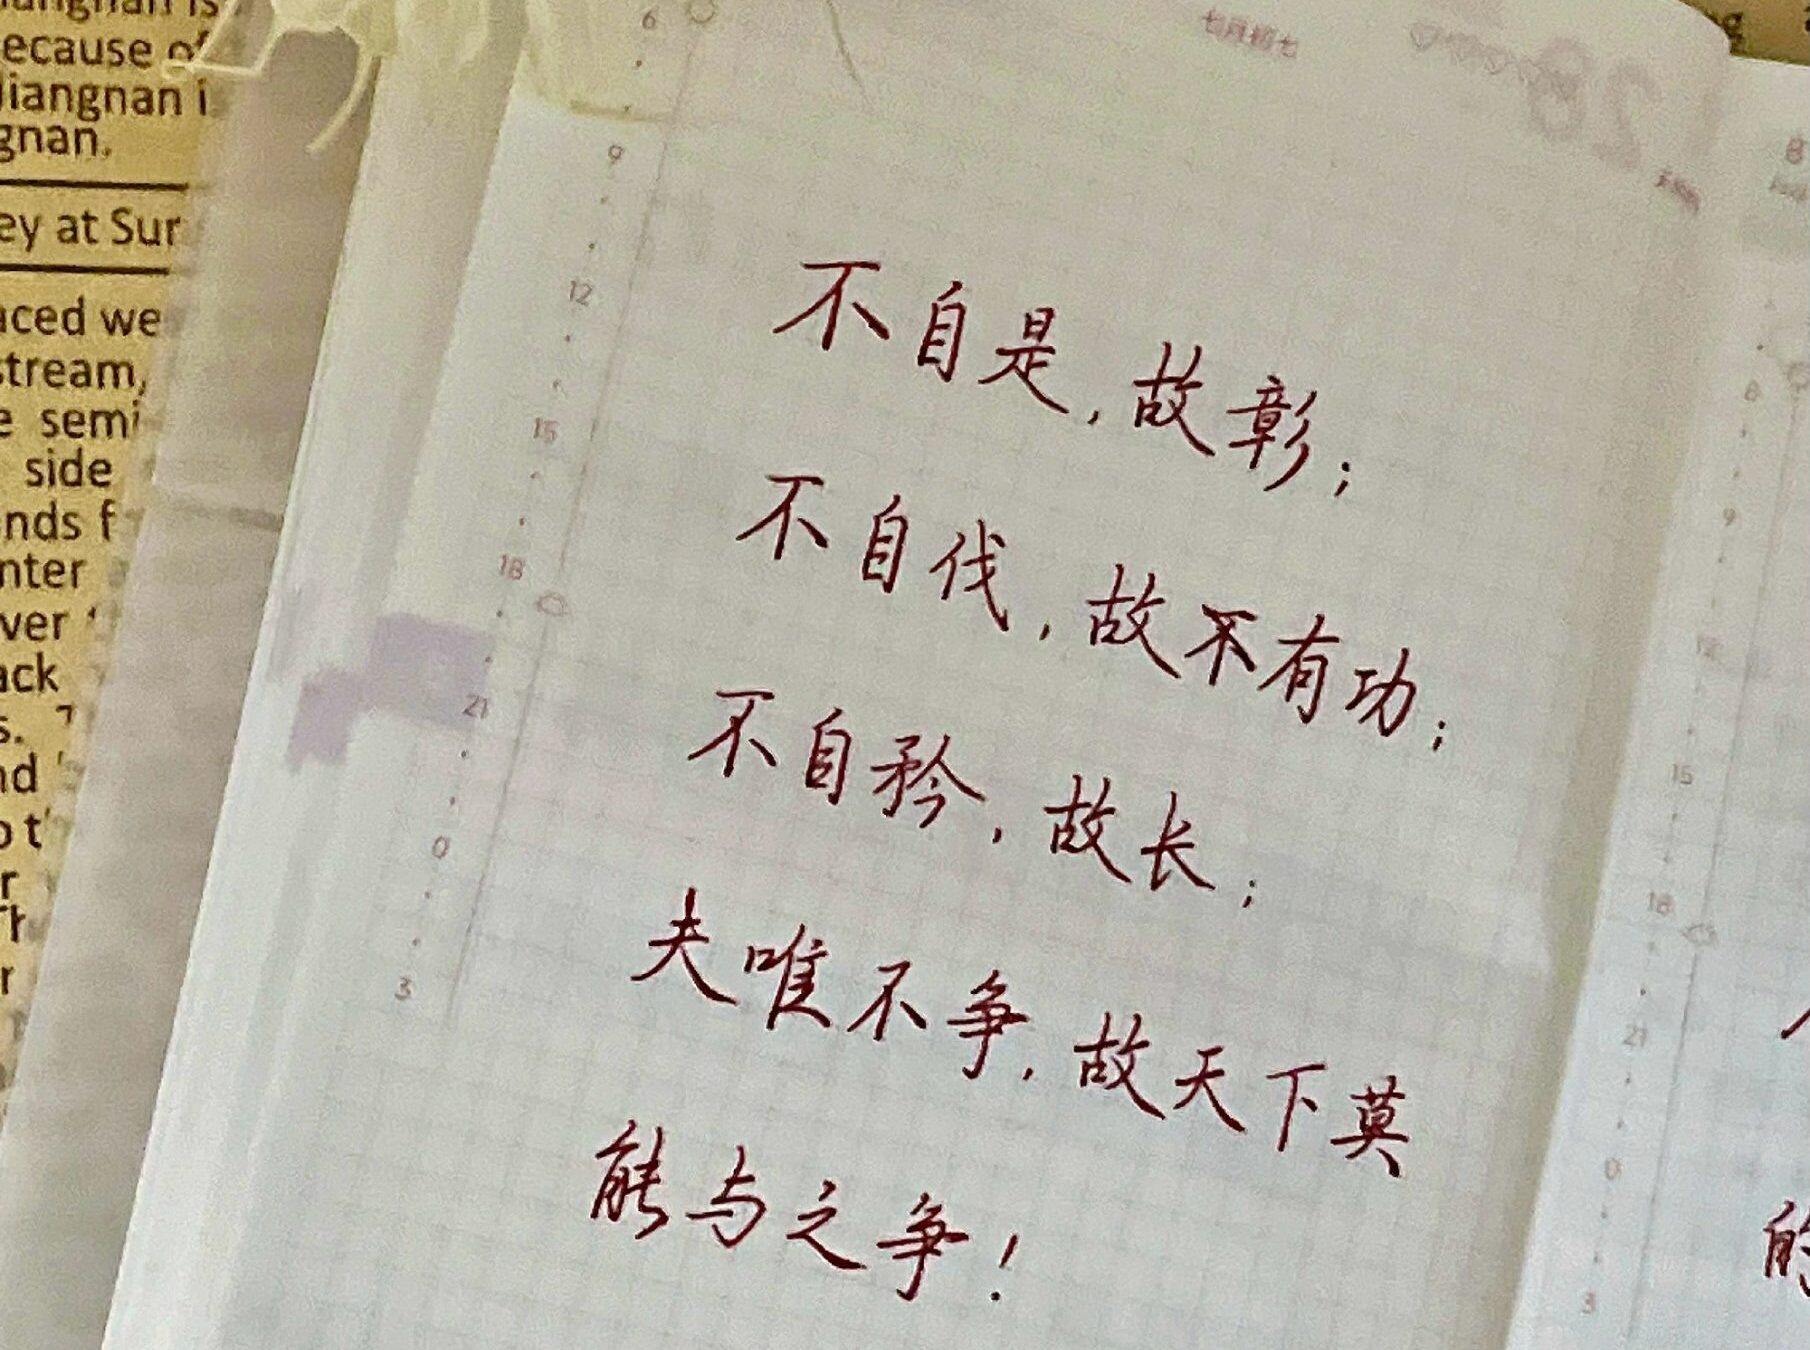 iangnan is
ecause of
Jiangnan i
gnan.
ey at Sur
aced we
stream,
e semi
side
nds f
nter
ver
ack
s.
nd
o t
r
Th
r
6
9
12
15
18
21
0
3
七月初七
28
不自是，故彰；
不自伐，故不有功；
不自矜，故长；
夫唯不争，故天下莫
能与之争！
8
6
9
12
15
18
21
0
3
的